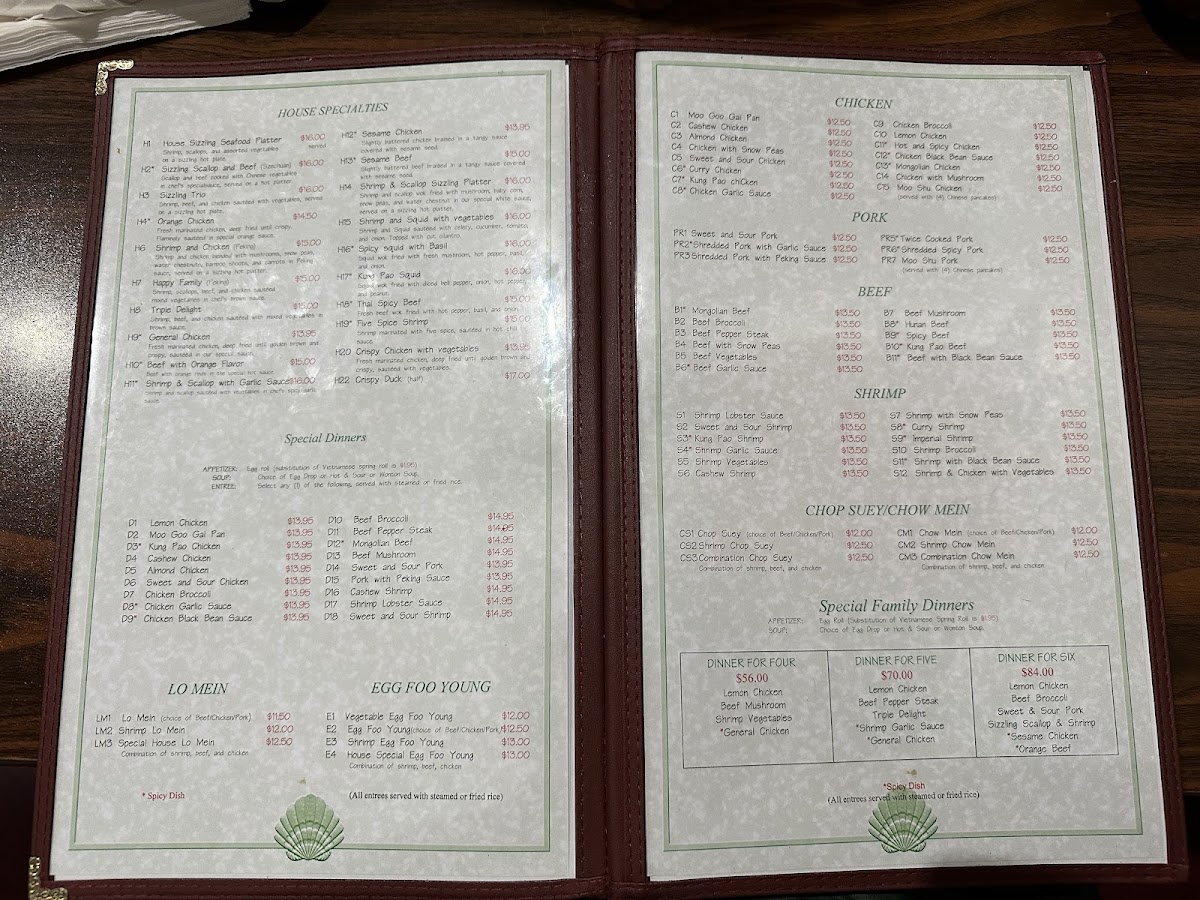 HOUSE SPECIALTIES
H1 House Sizzling Seafood Platter $16.00
Shrimp, scallops, and assorted vegetables served
on a sizzling hot plate.
H2* Sizzling Scallop and Beef (Szechuan) $16.00
Scallop and beef cooked with Chinese vegetables
in chef's special sauce, served on a hot platter.
H3 Sizzling Trio $16.00
Shrimp, beef, and chicken sautéed with vegetables, served
on a sizzling hot plate.
H4* Orange Chicken $14.50
Fresh marinated chicken, deep fried until crispy.
Flamingly sautéed in special orange sauce.
H6 Shrimp and Chicken (Peking) $15.00
Shrimp and chicken sautéed with mushrooms, snow peas,
water chestnuts, bamboo shoots, and carrots in Peking
sauce, served on a sizzling hot platter.
H7 Happy Family (Peking) $15.00
Shrimp, scallops, beef, and chicken sautéed
mixed vegetables in chef's brown sauce.
H8 Triple Delight $15.00
Shrimp, beef, and chicken sautéed with mixed vegetables in
brown sauce.
H9* General Chicken $13.95
Fresh marinated chicken, deep fried until golden brown and
crispy, sautéed in our special sauce.
H10* Beef with Orange Flavor $15.00
Beef with orange in hot sauce
H11* Shrimp & Scallop with Garlic Sauce $16.00
Shrimp and scallop sautéed with vegetables in chef's spicy garlic
sauce.
H12* Sesame Chicken $13.95
Slightly battered chicken braised in a tangy sauce
covered with sesame seed.
H13* Sesame Beef $15.00
Slightly battered beef braised in a tangy sauce covered
with sesame seed.
H14 Shrimp & Scallop Sizzling Platter $16.00
Shrimp and scallop wok fried with mushroom, baby corn,
snow peas, and water chestnut in our special white sauce,
served on a sizzling hot platter.
H15 Shrimp and Squid with vegetables $16.00
Shrimp and Squid sautéed with celery, cucumber, tomato,
and onion. Topped with cilantro.
H16* Spicy squid with Basil $16.00
Squid wok fried with fresh mushroom, hot pepper, basil,
and onion.
H17* Kung Pao Squid $16.00
Squid wok fried with diced bell pepper, onion, hot pepper,
and peanut.
H18* Thai Spicy Beef $15.00
Fresh beef wok fried with hot pepper, basil, and onion.
H19* Five Spice Shrimp $15.00
Shrimp marinated with five spice, sautéed in hot chili
sauce.
H20 Crispy Chicken with vegetables $13.95
Fresh marinated chicken, deep fried until golden brown and
crispy, sautéed with vegetables.
H22 Crispy Duck (half) $17.00
Special Dinners
APPETIZER: Egg roll (substitution of Vietnamese spring roll is $1.95)
SOUP: Choice of Egg Drop or Hot & Sour or Wonton Soup.
ENTREE: Select any (1) of the following, served with steamed or fried rice.
D1 Lemon Chicken $13.95
D2 Moo Goo Gai Pan $13.95
D3* Kung Pao Chicken $13.95
D4 Cashew Chicken $13.95
D5 Almond Chicken $13.95
D6 Sweet and Sour Chicken $13.95
D7 Chicken Broccoli $13.95
D8* Chicken Garlic Sauce $13.95
D9* Chicken Black Bean Sauce $13.95
D10 Beef Broccoli $14.95
D11 Beef Pepper Steak $14.95
D12* Mongolian Beef $14.95
D13 Beef Mushroom $14.95
D14 Sweet and Sour Pork $13.95
D15 Pork with Peking Sauce $13.95
D16 Cashew Shrimp $14.95
D17 Shrimp Lobster Sauce $14.95
D18 Sweet and Sour Shrimp $14.95
LO MEIN
LM1 Lo Mein (choice of Beef/Chicken/Pork) $11.50
LM2 Shrimp Lo Mein $12.00
LM3 Special House Lo Mein $12.50
Combination of shrimp, beef, and chicken
EGG FOO YOUNG
E1 Vegetable Egg Foo Young $12.00
E2 Egg Foo Young (choice of Beef/Chicken/Pork) $12.50
E3 Shrimp Egg Foo Young $13.00
E4 House Special Egg Foo Young $13.00
Combination of shrimp, beef, chicken
* Spicy Dish
(All entrees served with steamed or fried rice)
CHICKEN
C1 Moo Goo Gai Pan $12.50
C2 Cashew Chicken $12.50
C3 Almond Chicken $12.50
C4 Chicken with Snow Peas $12.50
C5 Sweet and Sour Chicken $12.50
C6* Curry Chicken $12.50
C7* Kung Pao chicken $12.50
C8* Chicken Garlic Sauce $12.50
C9 Chicken Broccoli $12.50
C10 Lemon Chicken $12.50
C11* Hot and Spicy Chicken $12.50
C12* Chicken Black Bean Sauce $12.50
C13* Mongolian Chicken $12.50
C14 Chicken with Mushroom $12.50
C15 Moo Shu Chicken $12.50
(served with (4) Chinese pancakes)
PORK
PR1 Sweet and Sour Pork $12.50
PR2* Shredded Pork with Garlic Sauce $12.50
PR3 Shredded Pork with Peking Sauce $12.50
PR5* Twice Cooked Pork $12.50
PR6* Shredded Spicy Pork $12.50
PR7 Moo Shu Pork $12.50
(served with (4) Chinese pancakes)
BEEF
B1* Mongolian Beef $13.50
B2 Beef Broccoli $13.50
B3 Beef Pepper Steak $13.50
B4 Beef with Snow Peas $13.50
B5 Beef Vegetables $13.50
B6* Beef Garlic Sauce $13.50
B7 Beef Mushroom $13.50
B8* Hunan Beef $13.50
B9* Spicy Beef $13.50
B10* Kung Pao Beef $13.50
B11* Beef with Black Bean Sauce $13.50
SHRIMP
S1 Shrimp Lobster Sauce $13.50
S2 Sweet and Sour Shrimp $13.50
S3* Kung Pao Shrimp $13.50
S4* Shrimp Garlic Sauce $13.50
S5 Shrimp Vegetables $13.50
S6 Cashew Shrimp $13.50
S7 Shrimp with Snow Peas $13.50
S8* Curry Shrimp $13.50
S9* Imperial Shrimp $13.50
S10 Shrimp Broccoli $13.50
S11* Shrimp with Black Bean Sauce $13.50
S12 Shrimp & Chicken with Vegetables $13.50
CHOP SUEY/CHOW MEIN
CS1 Chop Suey (choice of Beef/Chicken/Pork) $12.00
CS2 Shrimp Chop Suey $12.50
CS3 Combination Chop Suey $12.50
Combination of shrimp, beef, and chicken
CM1 Chow Mein (choice of Beef/Chicken/Pork) $12.00
CM2 Shrimp Chow Mein $12.50
CM3 Combination Chow Mein $12.50
Combination of shrimp, beef, and chicken
Special Family Dinners
APPETIZER: Egg Roll (Substitution of Vietnamese Spring Roll is $1.95)
SOUP: Choice of Egg Drop or Hot & Sour or Wonton Soup.
DINNER FOR FOUR
$56.00
Lemon Chicken
Beef Mushroom
Shrimp Vegetables
*General Chicken
DINNER FOR FIVE
$70.00
Lemon Chicken
Beef Pepper Steak
Triple Delight
*Shrimp Garlic Sauce
*General Chicken
DINNER FOR SIX
$84.00
Lemon Chicken
Beef Broccoli
Sweet & Sour Pork
Sizzling Scallop & Shrimp
*Sesame Chicken
*Orange Beef
*Spicy Dish
(All entrees served with steamed or fried rice)